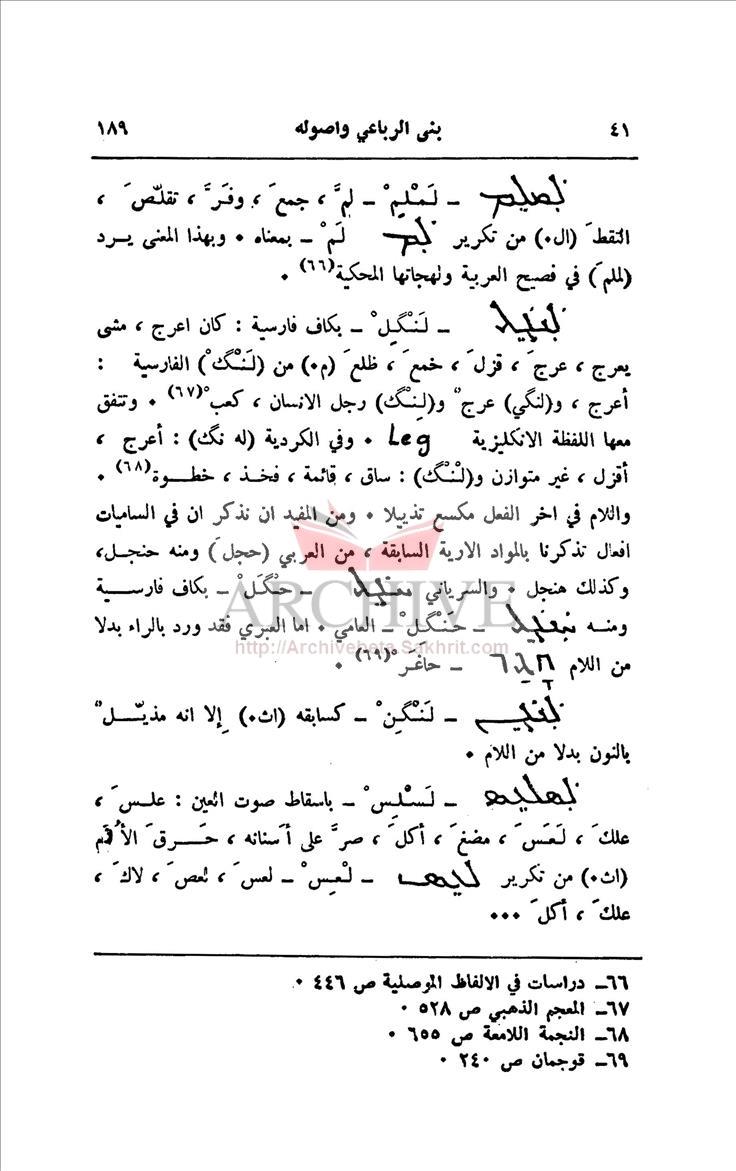 ٤١ بنى الرباعي واصوله ١٨٩
ـ لَمْلِمْ ـ لمَّ ، جمعَ ، وفَرَّ ، تقلّصَ ،
التقطَ (ال٠) من تكرير لَمْ ـ بمعناه ٠ وبهذا المعنى يـرد
(لملمَ) في فصيح العربية ولهجاتها المحكية(٦٦) ٠
ـ لَنْگِلْ ـ بكاف فارسية : كان اعرج ، مشى
يعرج ، عرجَ ، قزلَ ، خمعَ ، ظلعَ (م٠) من (لَنْگْ) الفارسية :
أعرج ، و(لنگي) عرج و(لِنْگ) رجل الانسان ، كعب(٦٧) ٠ وتتفق
معها اللفظة الانكليزية Leg ٠ وفي الكردية (له نگ) : أعرج ،
أقزل ، غير متوازن و(لْنْگ) : ساق ، قائمة ، فخـذ ، خطـوة(٦٨) ٠
واللام في اخر الفعل مكسع تذييلا ٠ ومن المفيد ان نذكر ان في الساميات
افعال تذكرنا بالمواد الارية السابقة ، من العربي (حجلَ) ومنه حنجل،
وكذلك هنجل ٠ والسرياني ـ حْگَلْ ـ بكاف فارسـية
ومنـه ـ حَنْگَلْ ـ العامي ٠ اما العبري فقد ورد بالراء بدلا
من اللام ـ حاغَر(٦٩) ٠
ـ لَنْگِنْ ـ كسابقه (اث٠) إلا انه مذيّـل
بالنون بدلا من اللام ٠
ـ لَسْلِسْ ـ باسقاط صوت العين : علـسَ ،
علكَ ، لَعَسَ ، مضغَ ، أكلَ ، صرَّ على أسنانه ، حَـرقَ الأُرَّم
(اث٠) من تكرير ـ لْعِسْ ـ لعسَ ، لعصَ ، لاكَ ،
علكَ ، أكلَ ٠٠٠
٦٦ـ دراسات في الالفاظ الموصلية ص ٤٤٦ ٠
٦٧ـ المعجم الذهبي ص ٥٢٨ ٠
٦٨ـ النجمة اللامعة ص ٦٥٥ ٠
٦٩ـ قوجمان ص ٢٤٠ ٠
ARCHIVE
http://Archivebeta.Sakhrit.com